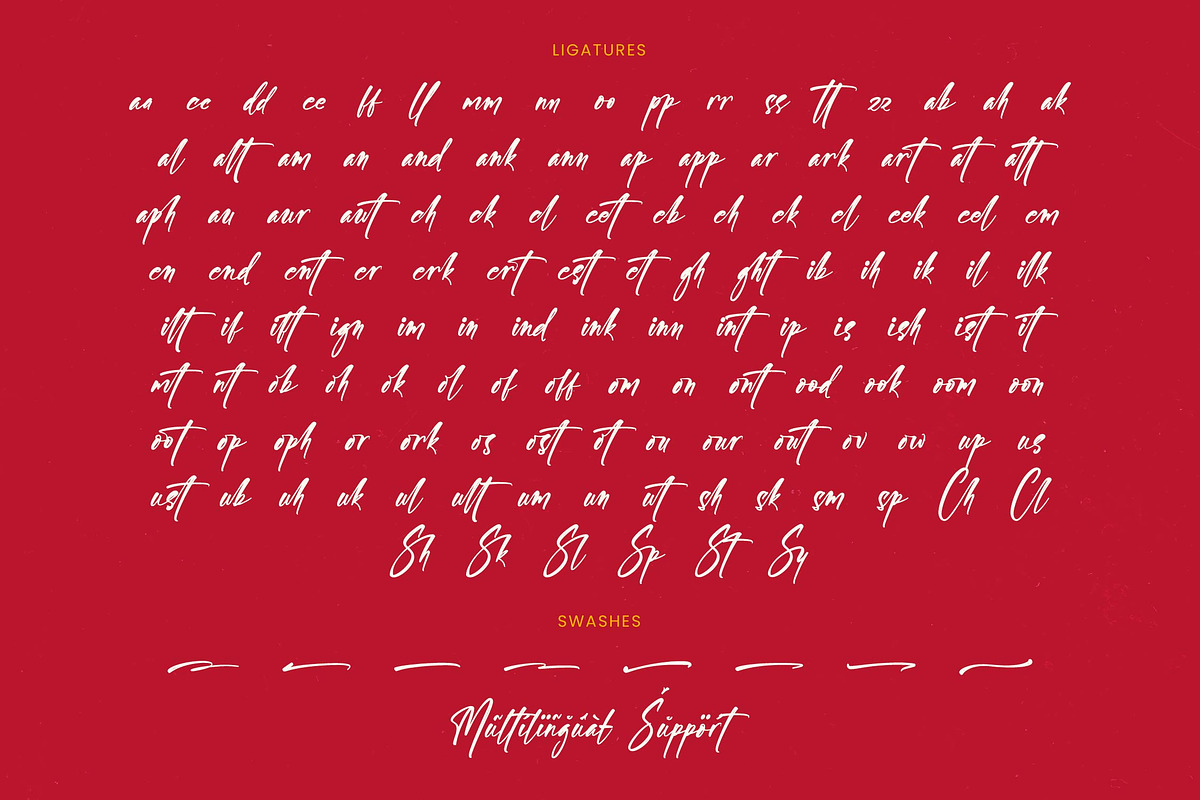 LIGATURES
aa cc dd ee ff ll mm nn oo pp rr ss tt zz ab ah ak
al alt am an and ank ann ap app ar ark art at att
aph au aur aut ch ck cl eet eb eh ek el eek eel em
en end ent er erk ert est et gh ght ib ih ik il ilk
ilt if ift ign im in ind ink inn int ip is ish ist it
mt nt ob oh ok ol of off om on ont ood ook oom oon
oot op oph or ork os ost ot ou our out ov ow up us
ust ub uh uk ul ult um un ut sh sk sm sp Ch Cl
Sh Sk Sl Sp St Sy
SWASHES
Mũltílïñğûàł Šŭppört